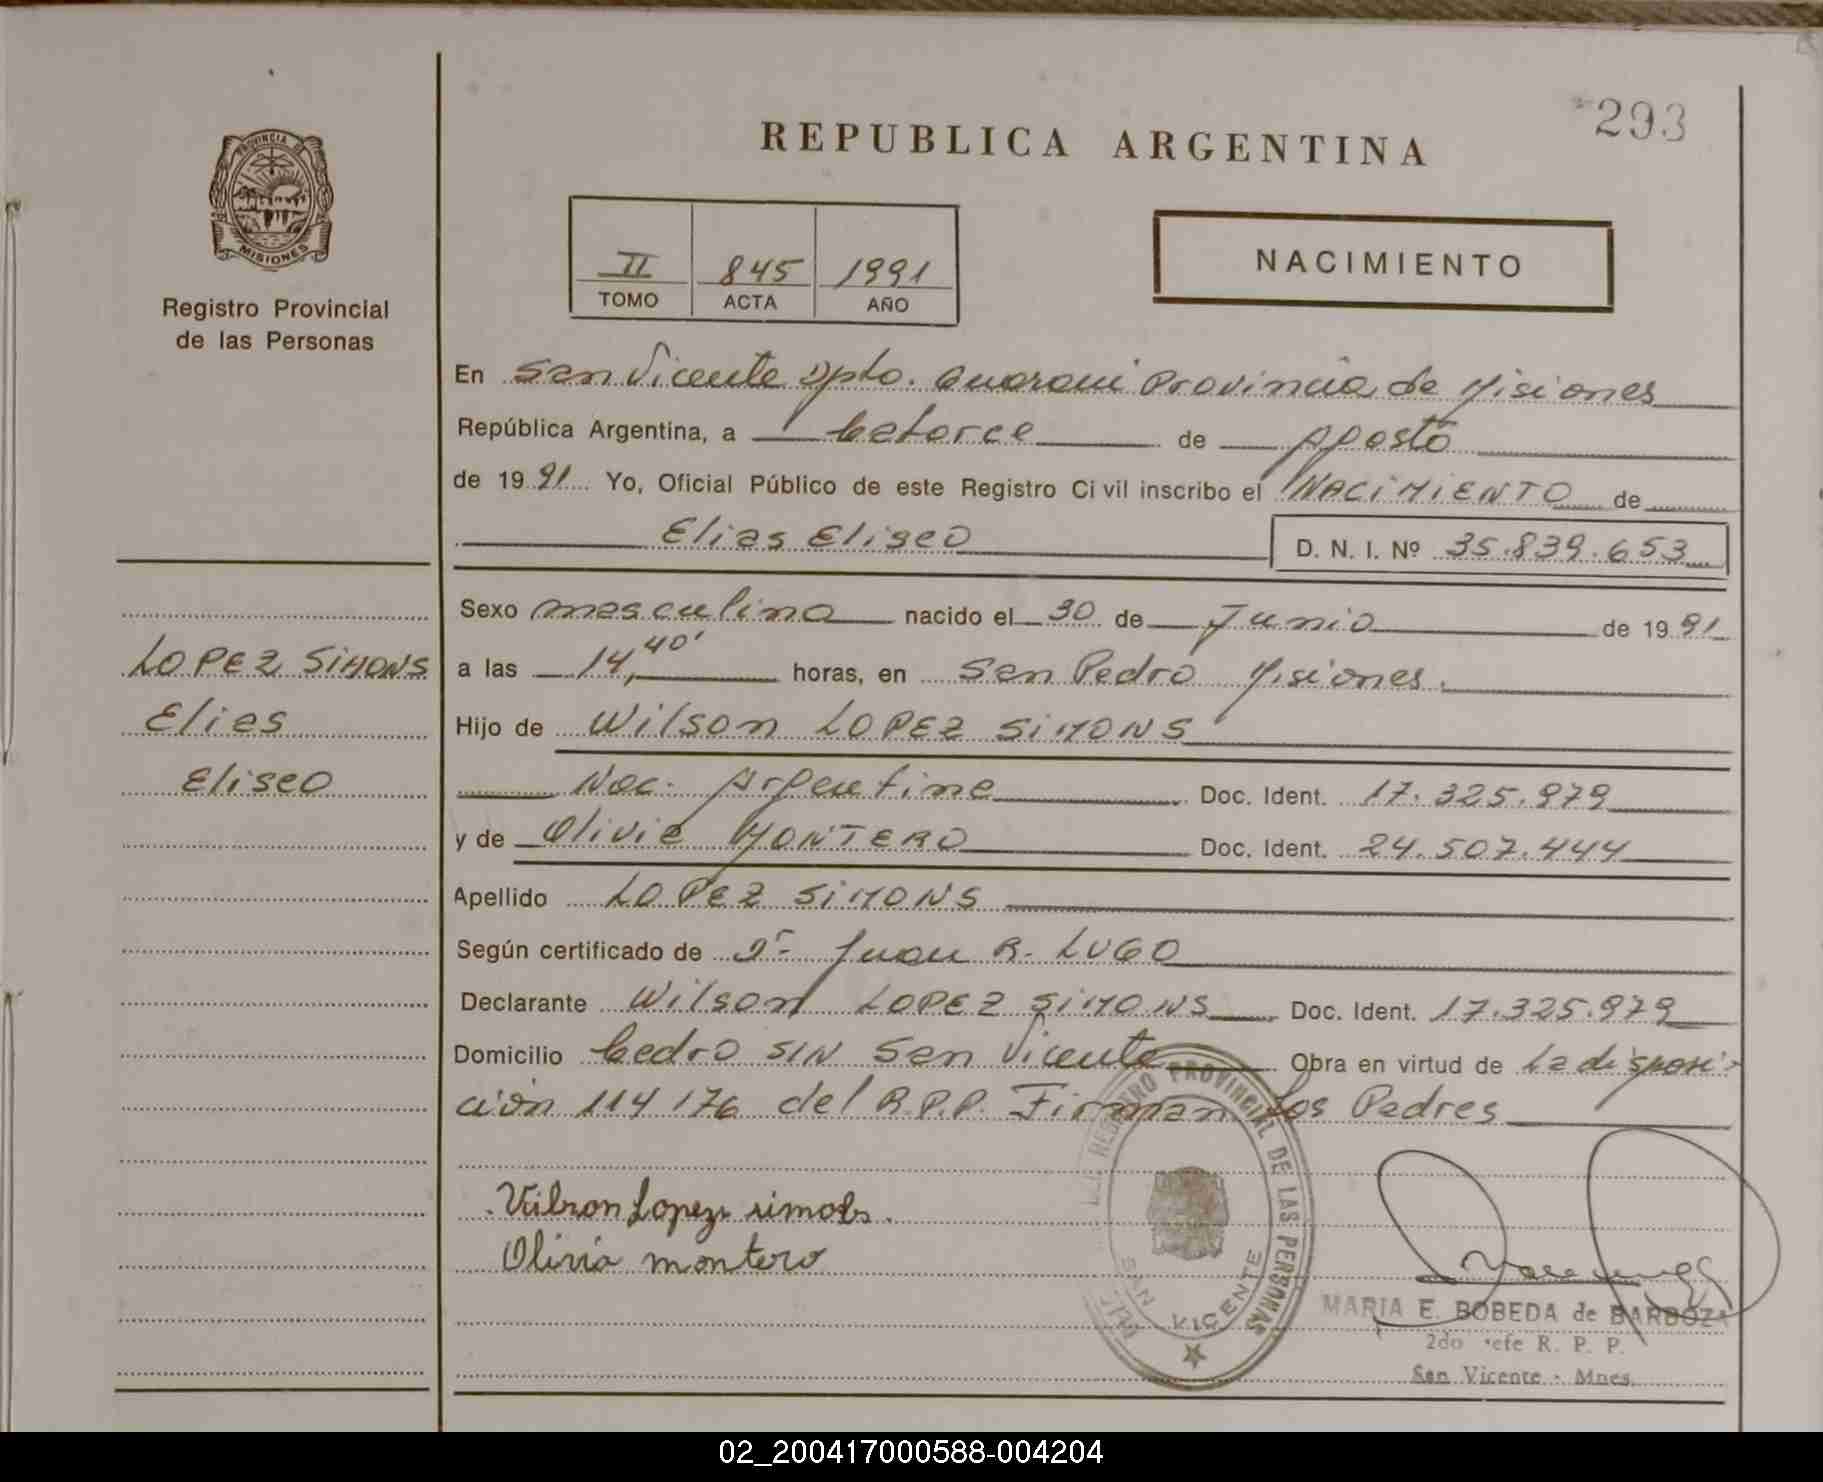 293
REPUBLICA ARGENTINA
PROVINCIA DE
MISIONES
Registro Provincial
de las Personas
II 845 1991
TOMO ACTA AÑO
NACIMIENTO
En San Vicente Dpto. Guarani Provincia de Misiones
República Argentina, a Catorce de Agosto
de 1991 Yo, Oficial Público de este Registro Civil inscribo el NACIMIENTO de
Elias Eliseo D. N. I. Nº 35.839.653
Sexo masculino nacido el 30 de Junio de 1991
LOPEZ SIMONS
Elias
Eliseo
a las 14,40' horas, en San Pedro Misiones.
Hijo de Wilson LOPEZ SIMONS
Nac. Argentina Doc. Ident. 17.325.979
y de Olivia MONTERO Doc. Ident. 24.507.444
Apellido LOPEZ SIMONS
Según certificado de Dr. Juan R. LUGO
Declarante Wilson LOPEZ SIMONS Doc. Ident. 17.325.979
Domicilio Cedro S/N San Vicente Obra en virtud de La disposi-
ción 114/76 del R.P.P. Firman Los Padres
REGISTRO PROVINCIAL DE LAS PERSONAS
SAN VICENTE
Vilson Lopez simons.
Olivia montero
MARIA E. BOBEDA de BARBOZA
2do Jefe R. P. P.
San Vicente - Mnes.
02_200417000588-004204